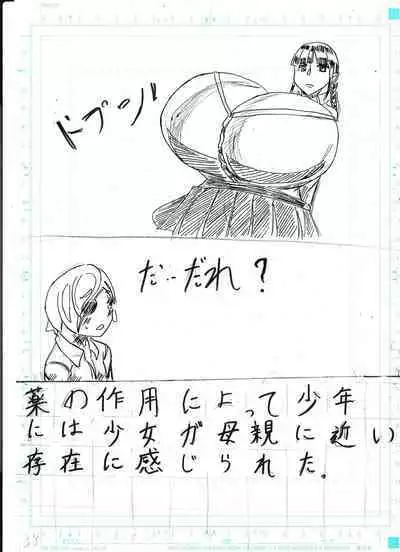 ドプーン!
だ…だれ？
薬の作用によって少年
には少女が母親に近い
存在に感じられた。